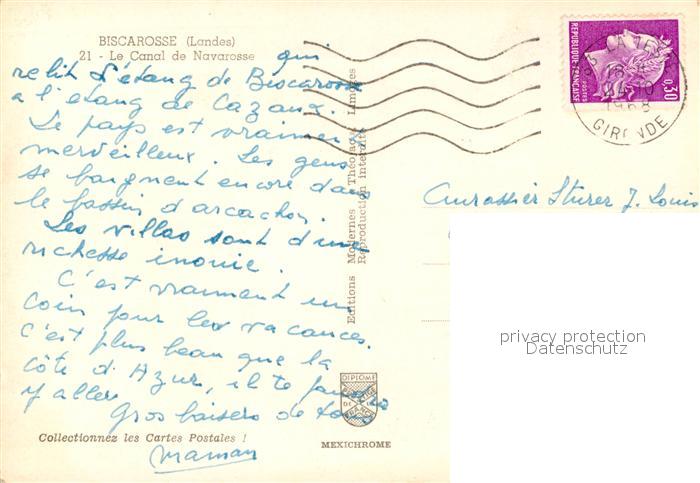 BISCAROSSE (Landes)
21 - Le Canal de Navarosse
qui
relit L'étang de Biscarosse
a l'etang de Cazaux.
Le pays est vraiment
merveilleux. Les gens
se baignent encore dans
le bassin d'arcachon.
Les villas sont d'une
richesse inouie.
C'est vraiment un
coin pour les vacances.
C'est plus beau que la
côte d'Azur, il te faudra
y aller
Gros baisers de tous
maman
Collectionnez les Cartes Postales !
MEXICHROME
Editions Modernes Théojac, Limoges
Reproduction interdite
DIPLOME
PRESTIGE
DE
FRANCE
REPUBLIQUE FRANÇAISE
POSTES
0,30
1968
GIRONDE
Cuirassier Sturer J. Louis
privacy protection
Datenschutz